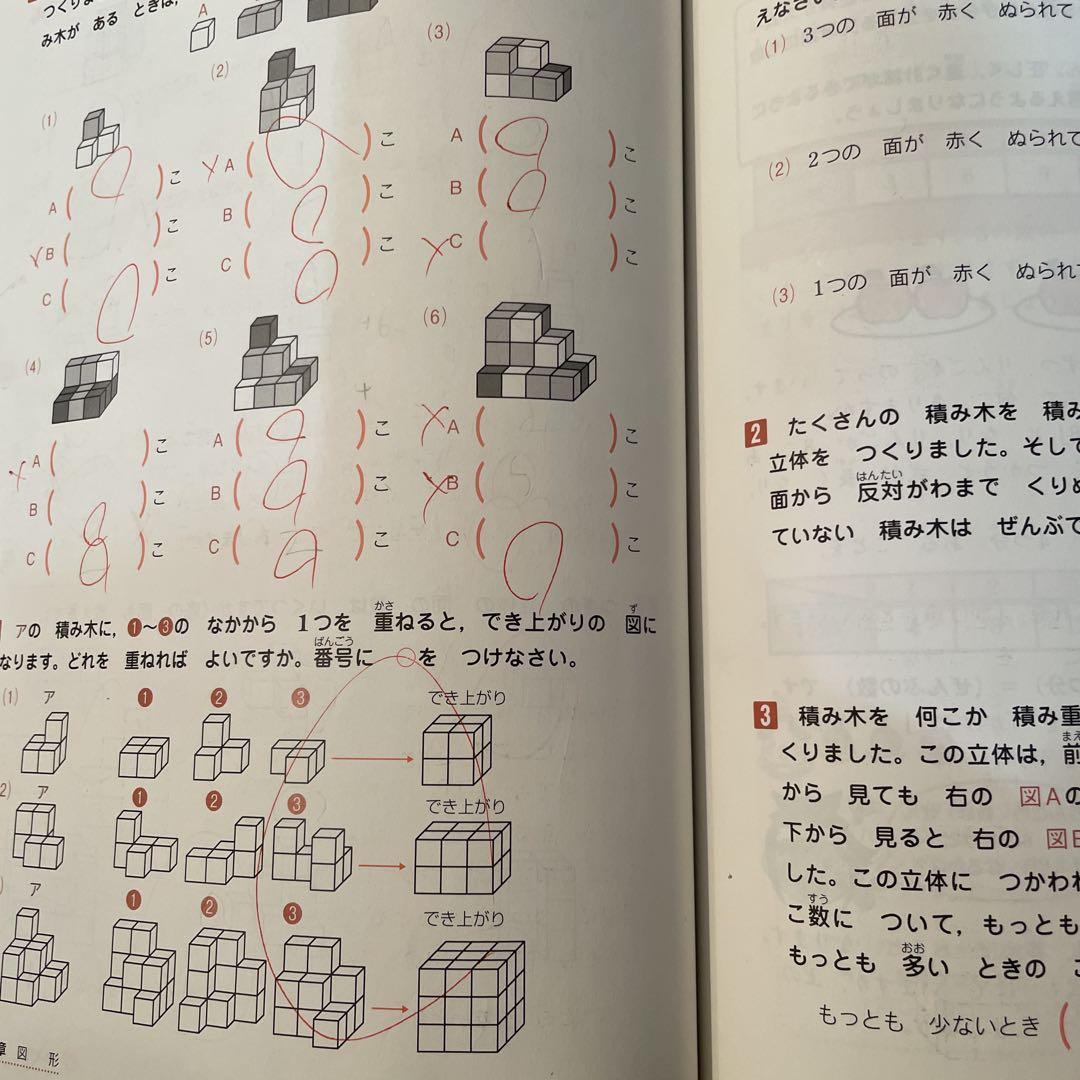 つくりま
み木が ある ときは,
A
(1)
(2)
(3)
A ( ) こ
B ( ) こ
C ( ) こ
A ( ) こ
B ( ) こ
C ( ) こ
A ( ) こ
B ( ) こ
C ( ) こ
(4)
(5)
(6)
A ( ) こ
B ( ) こ
C ( ) こ
A ( ) こ
B ( ) こ
C ( ) こ
A ( ) こ
B ( ) こ
C ( ) こ
アの 積み木に, ❶〜❸の なかから 1つを 重ねると, でき上がりの 図に
なります。どれを 重ねれば よいですか。番号に ○を つけなさい。
かさ
ず
ばんごう
(1) ア ❶ ❷ ❸ でき上がり
2) ア ❶ ❷ ❸ でき上がり
) ア ❶ ❷ ❸ でき上がり
章 図 形
えなさい
(1) 3つの 面が 赤く ぬられて
(2) 2つの 面が 赤く ぬられて
(3) 1つの 面が 赤く ぬられて
2 たくさんの 積み木を 積み
立体を つくりました。そして
はんたい
面から 反対がわまで くりぬ
ていない 積み木は ぜんぶで
3 積み木を 何こか 積み重
まえ
くりました。この立体は, 前
から 見ても 右の 図Aの
下から 見ると 右の 図B
した。この立体に つかわれ
すう
こ数に ついて, もっとも
おお
もっとも 多い ときの こ
もっとも 少ないとき (